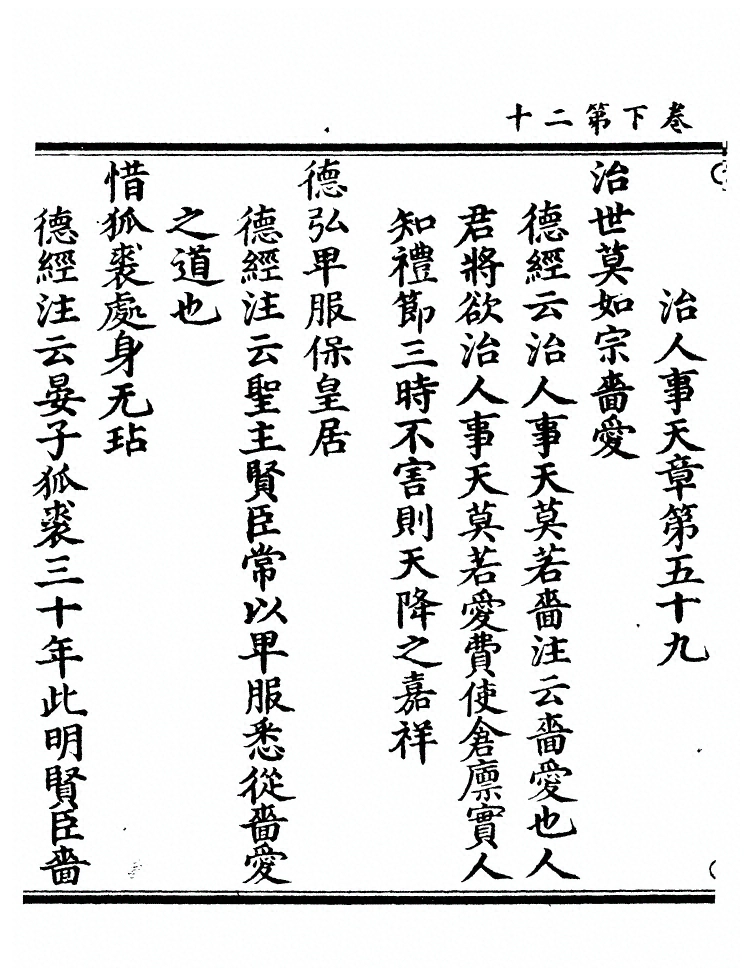 卷下第二十
治人事天章第五十九
治世莫如宗嗇愛
德經云治人事天莫若嗇注云嗇愛也人
君將欲治人事天莫若愛費使倉廩實人
知禮節三時不害則天降之嘉祥
德弘卑服保皇居
德經注云聖主賢臣常以卑服悉從嗇愛
之道也
惜狐裘處身无玷
德經注云晏子狐裘三十年此明賢臣嗇